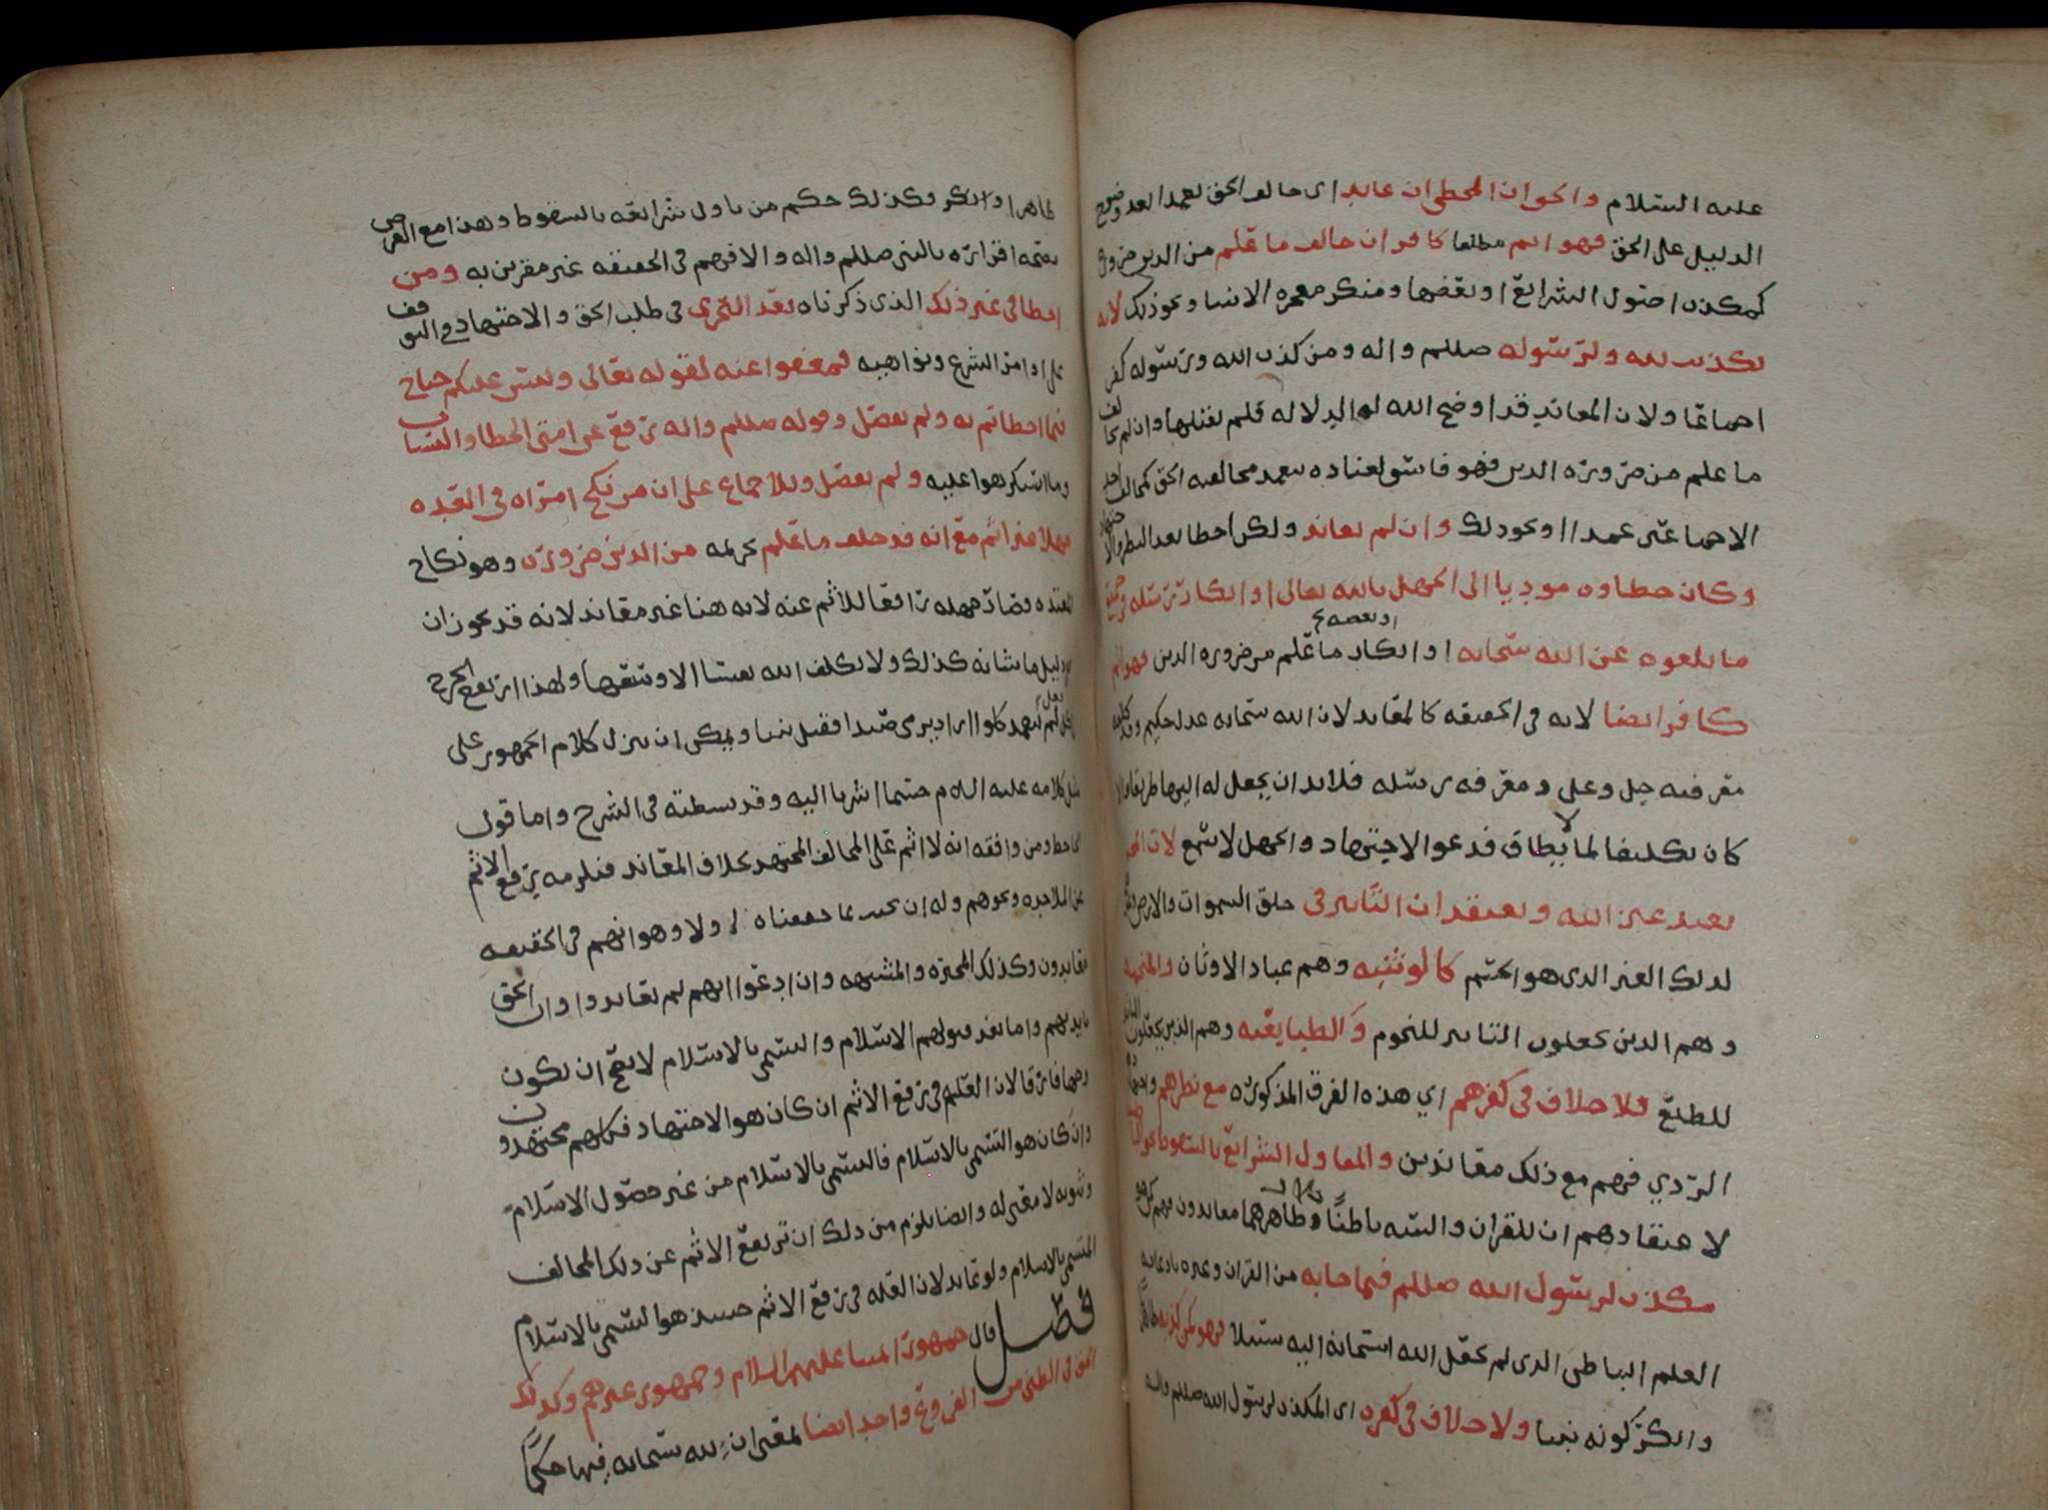 عليه السلام والحق ان المخطي ان عاند اى خالف الحق تعمدا بعد وضوح
الدليل على الحق فهو اثم مطلقا كافر ان خالف ما علم من الدين ضرورة
كمكذب اصول الشرائع او بعضها ومنكر معجزة الانبيا ونحو ذلك لانه
تكذيب لله ولرسوله صللم واله ومن كذب الله ورسوله كفر
اجماعا ولان المعاند قد اوضح الله له الدلاله فلم يقبلها وان لم يخالف
ما علم من ضرورة الدين فهو فاسق لعناده بتعمد مخالفه الحق كمخالف احد
الاجماعين عمدا او نحو ذلك وان لم يعاند ولكن اخطا بعد النظر والاجتهاد
وكان خطاوه موديا الى الجهل بالله تعالى او انكار رسله في جميع
ما بلغوه عن الله سبحانه او بعضه او انكار ما علم من ضروره الدين فهو اثم
كافر ايضا لانه في الحقيقه كالمعاند لان الله سبحانه عدل حكيم وقد كلفه
معرفته جل وعلى ومعرفه رسله فلابد ان يجعل له اليها طريقا والا
كان تكليفا لما لا يطاق فدعوا الاجتهاد والجهل لا تسمع لان
يعبد غير الله ويعتقد ان التاثير في خلق السموات والارض
لذلك الغير الذى هو الجسم كالوثنيه وهم عباد الاوثان والمنجمه
وهم الذين يجعلون التاثير للنجوم والطبايعيه وهم الذين يجعلون التاثير
للطبع فلا خلاف في كفرهم اي هذه الفرق المذكوره مع نظرهم
الردي فهم مع ذلك معاندين والمتاول الشرائع بالسقوط
لاعتقادهم ان للقران والسنه باطنا وظاهرهما معاندون فهم
مكذب لرسول الله صللم فيما جابه من القران وغيره بادعائه
العلم الباطن الذى لم يجعل الله سبحانه اليه سبيلا فهو كمن كذبه ظاهرا
وانكر كونه نبيا ولا خلاف في كفره اى المكذب لرسول الله صللم واله
ظاهرا وانكر وكذلك حكم من تاول شرائعه بالسقوط وهذا مع الفرض
بصحه اقراره بالنبي صللم واله والا فهم في الحقيقه غير مقرين به ومن
اخطا في غير ذلك الذى ذكرناه بعد التحري في طلب الحق والاجتهاد والتوقف
على اوامر الشرع ونواهيه فمعفوا عنه لقوله تعالى وليس عليكم جناح
فيما اخطاتم به ولم يفصل وقوله صللم واله رفع عن امتى الخطا والنسيان
وما استكرهوا عليه ولم يفصل وللاجماع على ان من نكح امراه في العده
جهلا غير اثم مع انه قد خالف ما علم تحريمه من الدين ضرورة وهو نكاح
المعتده فصار جهله رافعا للاثم عنه لانه هنا غير معاند لانه قد يجوز ان
دليل ما شانه كذلك ولا يكلف الله نفسا الا وسعها ولهذا ارتفع الحرج
اراد يرمى صيدا فقتل نبيا ويمكن ان ينزل كلام الجمهور على
مثل كلامه عليه السلام حسبما اشرنا اليه وقد بسطته في الشرح واما قول
الجاحظ ومن وافقه انه لا اثم على المخالف المجتهد بخلاف المعاند فيلزمه رفع الاثم
عن الملاحده ونحوهم وله ان يجيب بما حققناه اولا وهو انهم في الحقيقه
معاندون وكذلك المجبره والمشبهه وان ادعوا انهم لم يعاندوا وان الحق
بايديهم واما بعد قبولهم الاسلام والتسمي بالاسلام لا يصح ان يكون
وجها فارقا لان العله في رفع الاثم ان كان هو الاجتهاد فكلهم مجتهدون
وان كان هو التسمى بالاسلام فالتسمى بالاسلام من غير حصول الاسلام
وثبوته لا معنى له وايضا يلزم من ذلك ان يرتفع الاثم عن ذلك المخالف
المتسمى بالاسلام ولو عاند لان العله في رفع الاثم حينئذ هو التسمى بالاسلام
فصل قال جمهور ائمتنا عليهم السلام وجمهور غيرهم وكذلك
الحق في الظني من الفروع واحد ايضا بمعنى ان لله سبحانه فيها حكما